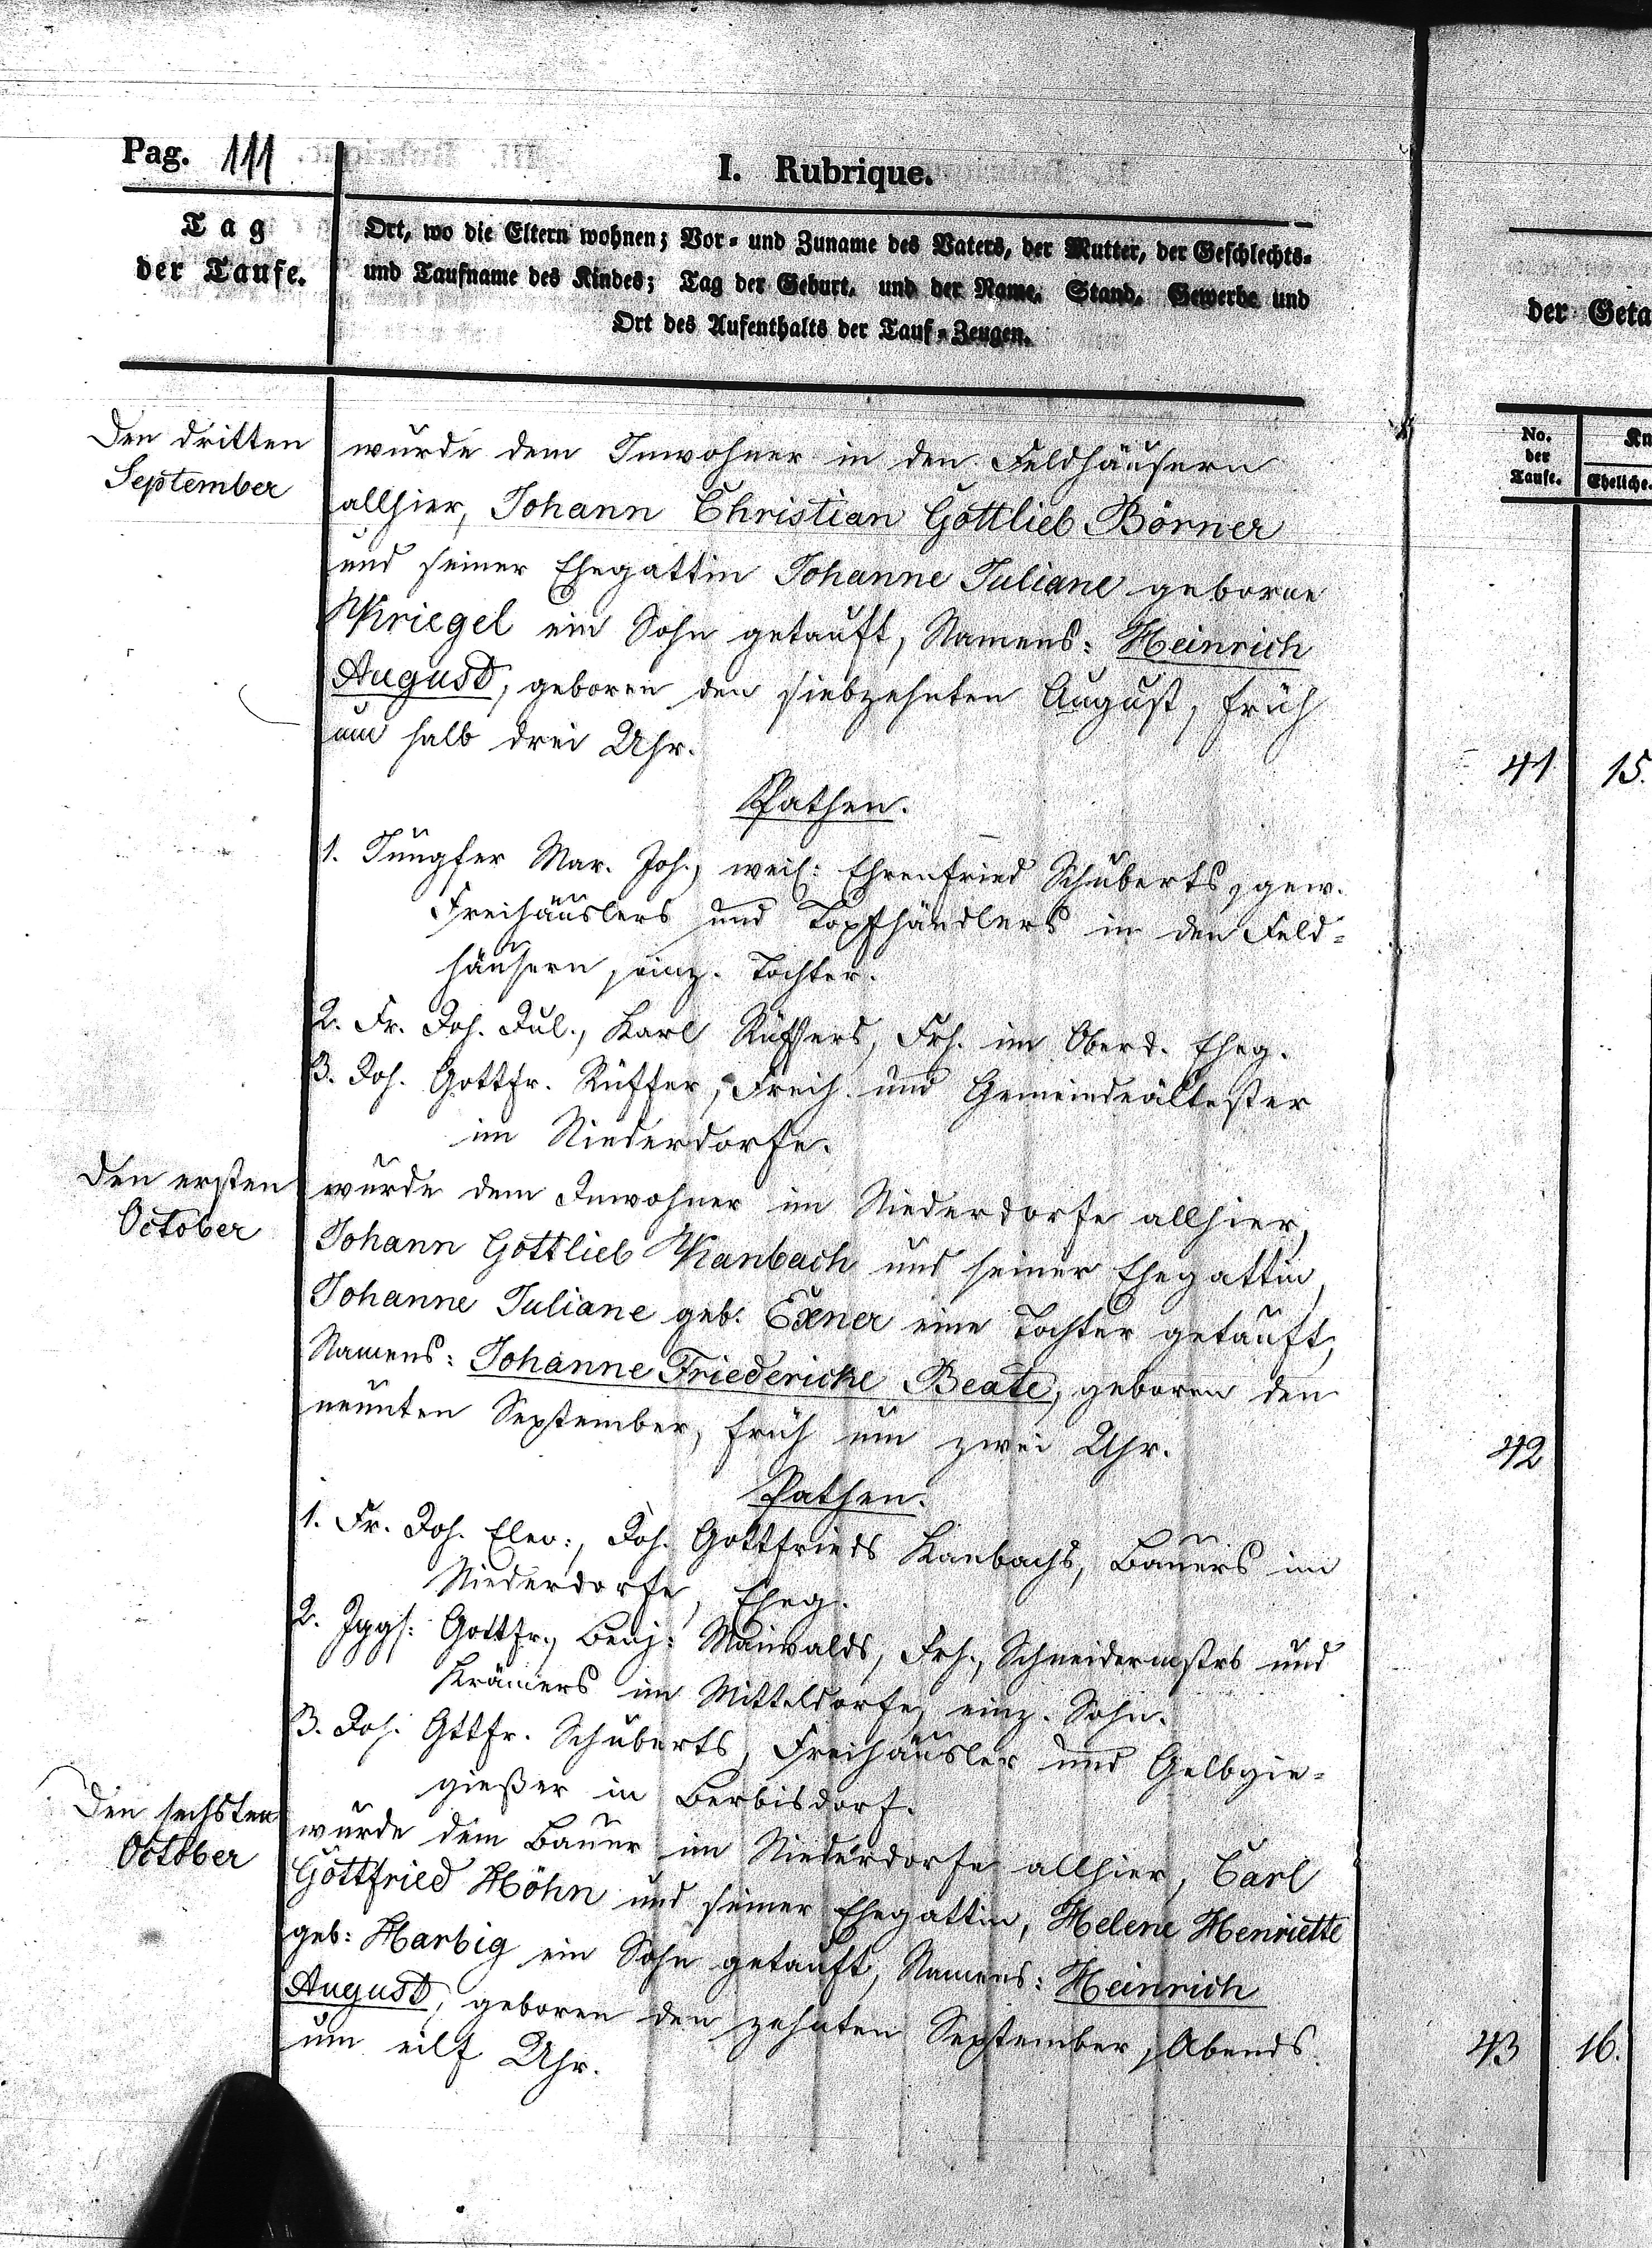 Pag. 111
I. Rubrique.
Tag
der Taufe.
Ort, wo die Eltern wohnen; Vor- und Zuname des Vaters, der Mutter, der Geschlechts-
und Taufname des Kindes; Tag der Geburt, und der Name, Stand, Gewerbe und
Ort des Aufenthalts der Tauf-Zeugen.
Den dritten
September
wurde dem Inwohner in den Feldhäusern
allhier, Johann Christian Gottlieb Börner
und seiner Ehegattin Johanne Juliane geborne
Kriegel ein Sohn getauft, Namens: Heinrich
August, geboren den siebzehnten August, früh
um halb drei Uhr.
Pathen.
1. Jungfer Mar. Joh., weil: Ehrenfried Schuberts, gew.
Freihäuslers und Topfhändlers in den Feld-
häusern, einz. Tochter.
2. Fr. Joh. Jul., Karl Rüffers, Frh. im Oberd. Eheg.
3. Joh. Gottfr. Rüffer, Freih. und Gemeindeältester
im Niederdorfe.
Den ersten
October
wurde dem Inwohner im Niederdorfe allhier,
Johann Gottlieb Kanbach und seiner Ehegattin,
Johanne Juliane geb. Exner eine Tochter getauft,
Namens: Johanne Friedericke Beate, geboren den
neunten September, früh um zwei Uhr.
Pathen.
1. Fr. Joh. Eleo:, Joh. Gottfrieds Kanbachs, Bauers im
Niederdorfe, Eheg.
2. Jggs: Gottfr., Benj: Maiwalds, Frh., Schneidermstrs und
Krämers im Mitteldorfe, einz. Sohn.
3. Joh. Gttfr. Schuberts, Freihäusler und Gelbgie-
gießer in Berbisdorf.
Den sechsten
October
wurde dem Bauer im Niederdorfe allhier, Carl
Gottfried Höhn und seiner Ehegattin, Helene Henriette
geb: Harbig ein Sohn getauft, Namens: Heinrich
August, geboren den zehnten September, Abends
um eilf Uhr.
der Geta
No.
der
Taufe.
Kn
Eheliche.
41 15.
42
43 16.